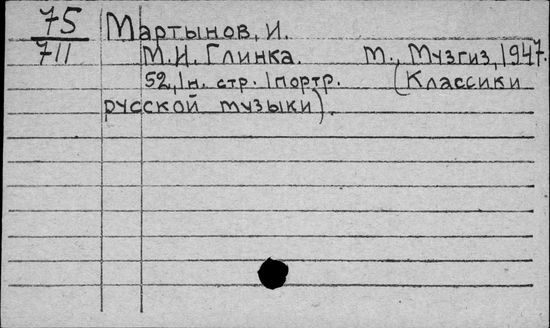 75 Мартынов, И.
711 М.И. Глинка. М., Музгиз, 1947.
52, 1н. стр. 1портр. (Классики
русской музыки).